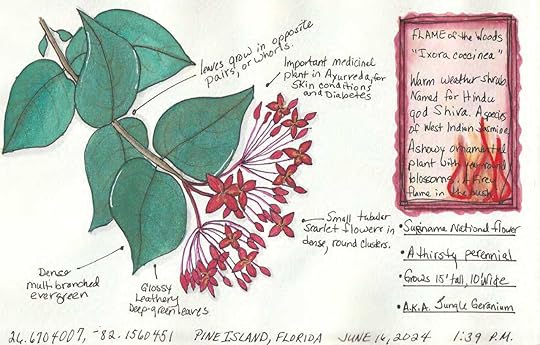 leaves grow in opposite
pairs, or whorls.
Important medicinal
plant in Ayurveda, for
Skin conditions
and Diabetes
Small tubular
Scarlet flowers in
dense, round clusters.
Dense
multi-branched
evergreen
Glossy
Leathery
Deep-green leaves
FLAME of the Woods
"Ixora coccinea"
Warm weather shrub
Named for Hindu
god Shiva. A species
of West Indian Jasmine.
A showy ornamental
plant with year round
blossoms. A firey
flame in the bush
• Suriname National flower
• A thirsty perennial
• Grows 15' tall, 10' wide
• A.K.A. Jungle Geranium
26.6704007, -82.1560451 PINE ISLAND, FLORIDA JUNE 16, 2024 1:39 P.M.